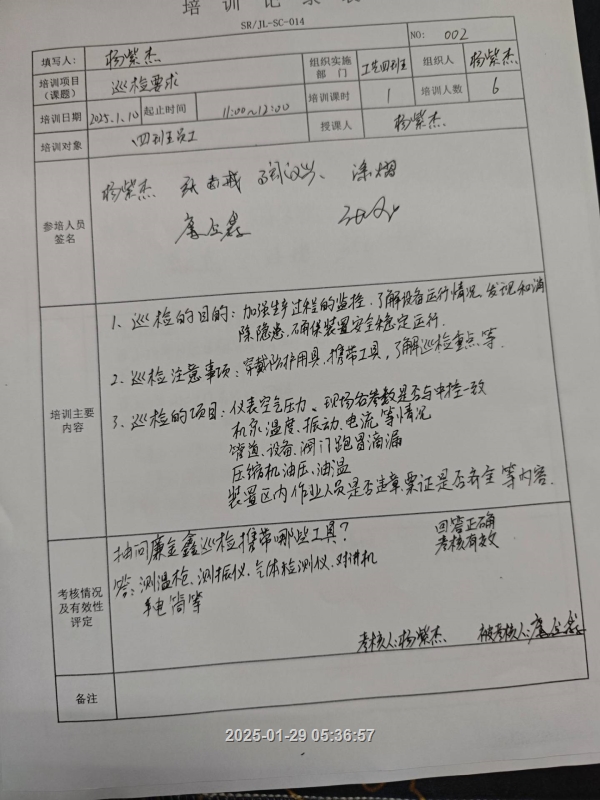 培训记录表
SR/JL-SC-014
填写人: 杨紫杰 NO: 002
培训项目(课题) 巡检要求 组织实施部门 工艺四班 组织人 杨紫杰
培训日期 2025.1.10 起止时间 11:00~12:00 培训课时 1 培训人数 6
培训对象 四班组员工 授课人 杨紫杰
参培人员签名 杨紫杰 涂熠
培训主要内容
1、巡检的目的: 加强生产过程的监控、了解设备运行情况、发现和消
除隐患、确保装置安全稳定运行.
2、巡检注意事项: 穿戴防护用具、携带工具, 了解巡检重点等.
3、巡检的项目: 仪表空气压力、现场各参数是否与中控一致
机泵温度、振动、电流等情况
管道、设备、阀门跑冒滴漏
压缩机油压、油温
装置区内作业人员是否违章票证是否齐全等内容.
考核情况及有效性评定
抽问廉金鑫巡检携带哪些工具? 回答正确
答: 测温枪、测振仪、气体检测仪、对讲机 考核有效
手电筒等
考核人: 杨紫杰 被考核人:
备注
2025-01-29 05:36:57